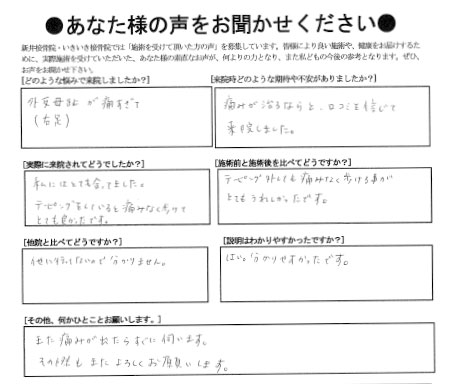 ●あなた様の声をお聞かせください●
新井接骨院・いきいき接骨院では「施術を受けて頂いた方の声」を募集しています。皆様により良い施術や、健康をお届けするた
めに、実際施術を受けていただいた、あなた様の素直なお声が、何よりの力となり、また私どもの今後の参考となります。ぜひ、
お声をお聞かせ下さい。
[どのような悩みで来院しましたか？]
外反母趾が痛すぎて
(右足)
[来院時どのような期待や不安がありましたか？]
痛みが治るならと、口コミを信じて
来院しました。
[実際に来院されてどうでしたか？]
私にはとても合ってました。
テーピングをしていると痛みなく歩けて
とても良かったです。
[施術前と施術後を比べてどうですか？]
テーピング外しても痛みなく歩ける事が
とてもうれしかったです。
[他院と比べてどうですか？]
他に行ってないので分かりません。
[説明はわかりやすかったですか？]
はい。分かりやすかったです。
[その他、何かひとことお願いします。]
また痛みが出たらすぐに伺います。
その時もまたよろしくお願いします。